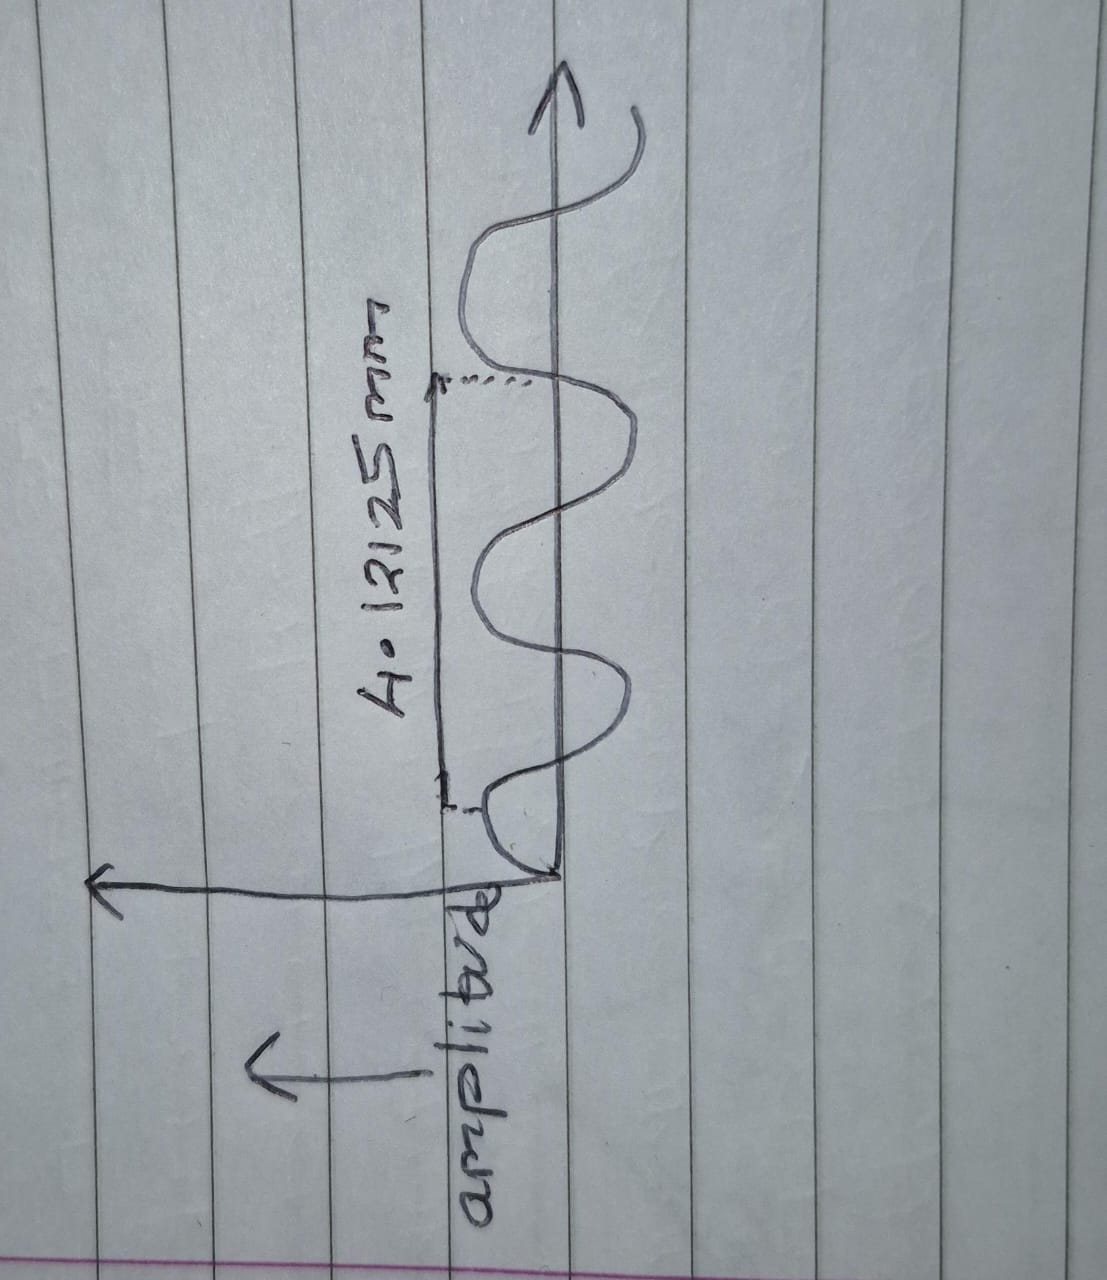 4.12125mm
amplitude